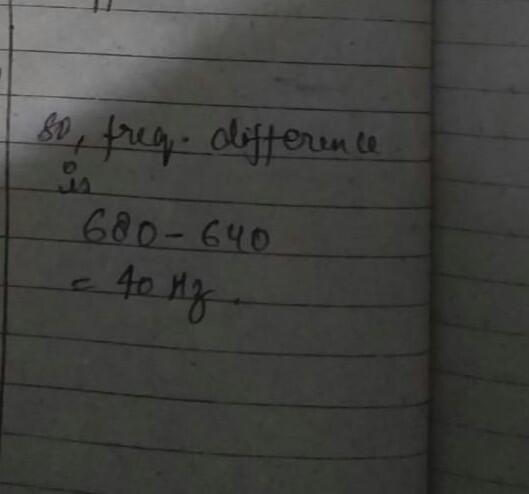 so, freq. difference
is
680 - 640
= 40 Hz.